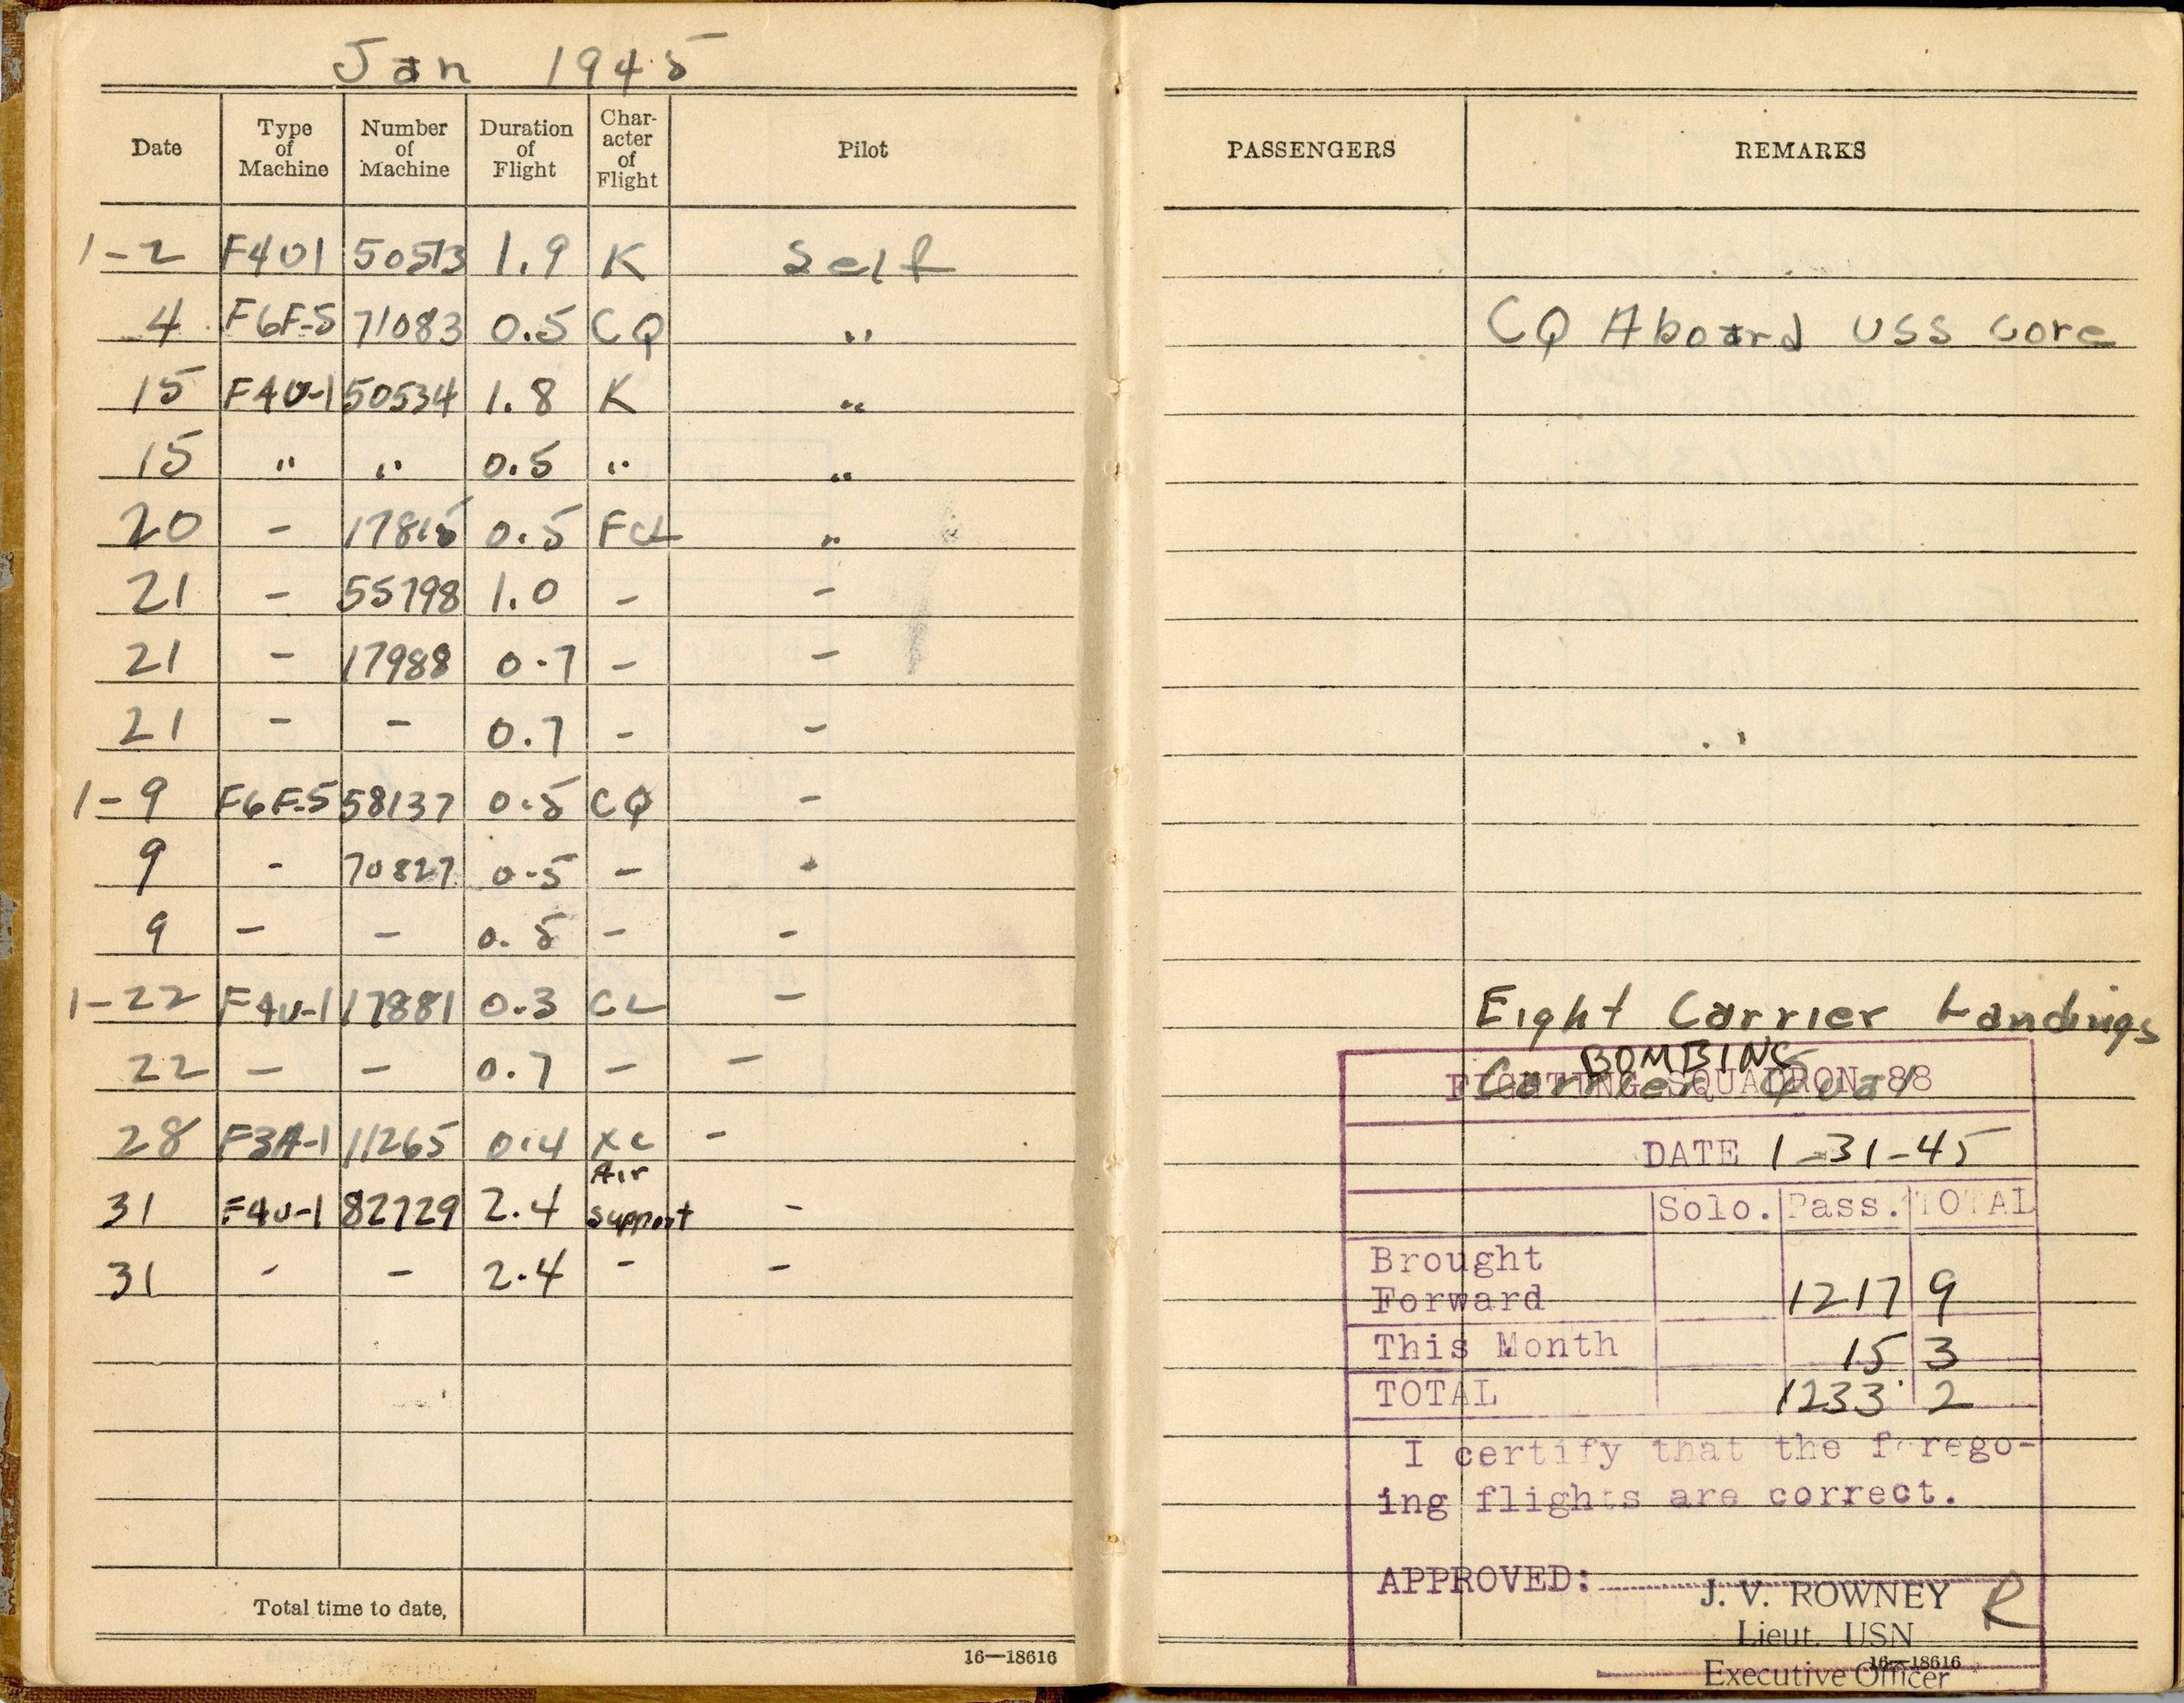 Jan 1945
Date Type of Machine Number of Machine Duration of Flight Char-acter of Flight Pilot
1-2 F4U1 50513 1.9 K Self
4 F6F-5 71083 0.5 CQ "
15 F4U-1 50534 1.8 K "
15 " " 0.5 " "
20 - 17815 0.5 FCL "
21 - 55798 1.0 - -
21 - 17988 0.7 - -
21 - - 0.7 - -
1-9 F6F-5 58137 0.5 CQ -
9 - 70827 0.5 - -
9 - - 0.5 - -
1-22 F4U-1 17881 0.3 CL -
22 - - 0.7 - -
28 F3A-1 11265 0.4 XC -
31 F4U-1 82729 2.4 Air Support -
31 - - 2.4 - -
Total time to date,
16—18616
PASSENGERS REMARKS
CQ Aboard USS Core
Eight Carrier Landings
BOMBING
Carrier Qual
FIGHTING SQUADRON-88
DATE 1-31-45
Solo. Pass. TOTAL
Brought
Forward 1217 9
This Month 15 3
TOTAL 1233 2
I certify that the forego-
ing flights are correct.
APPROVED:
J. V. ROWNEY R
Lieut. USN
Executive Officer
16—18616